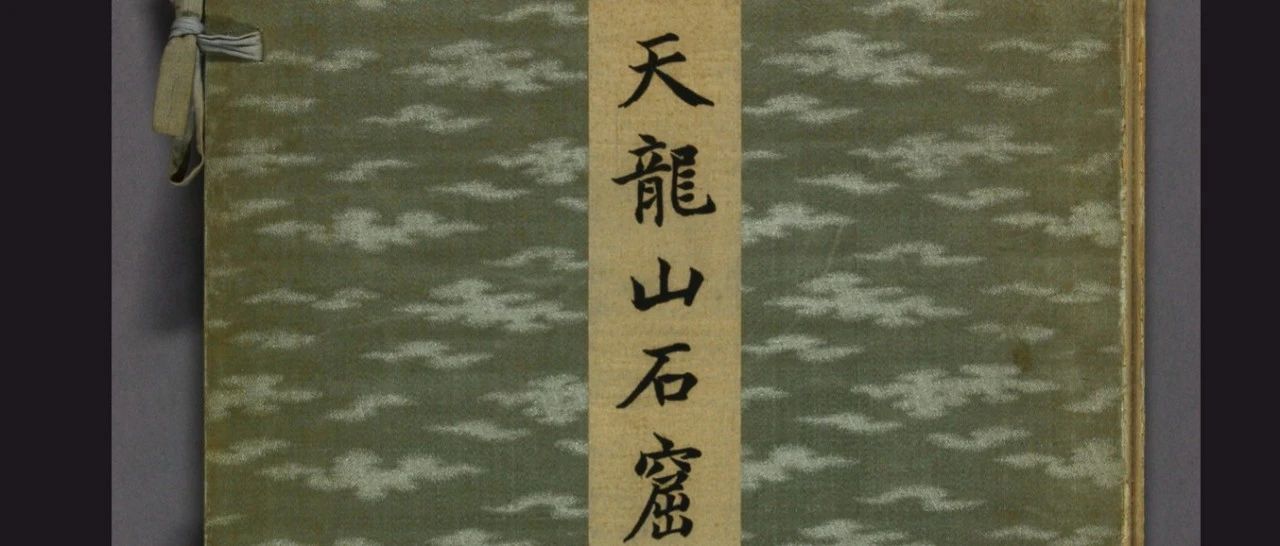 天龍山石窟